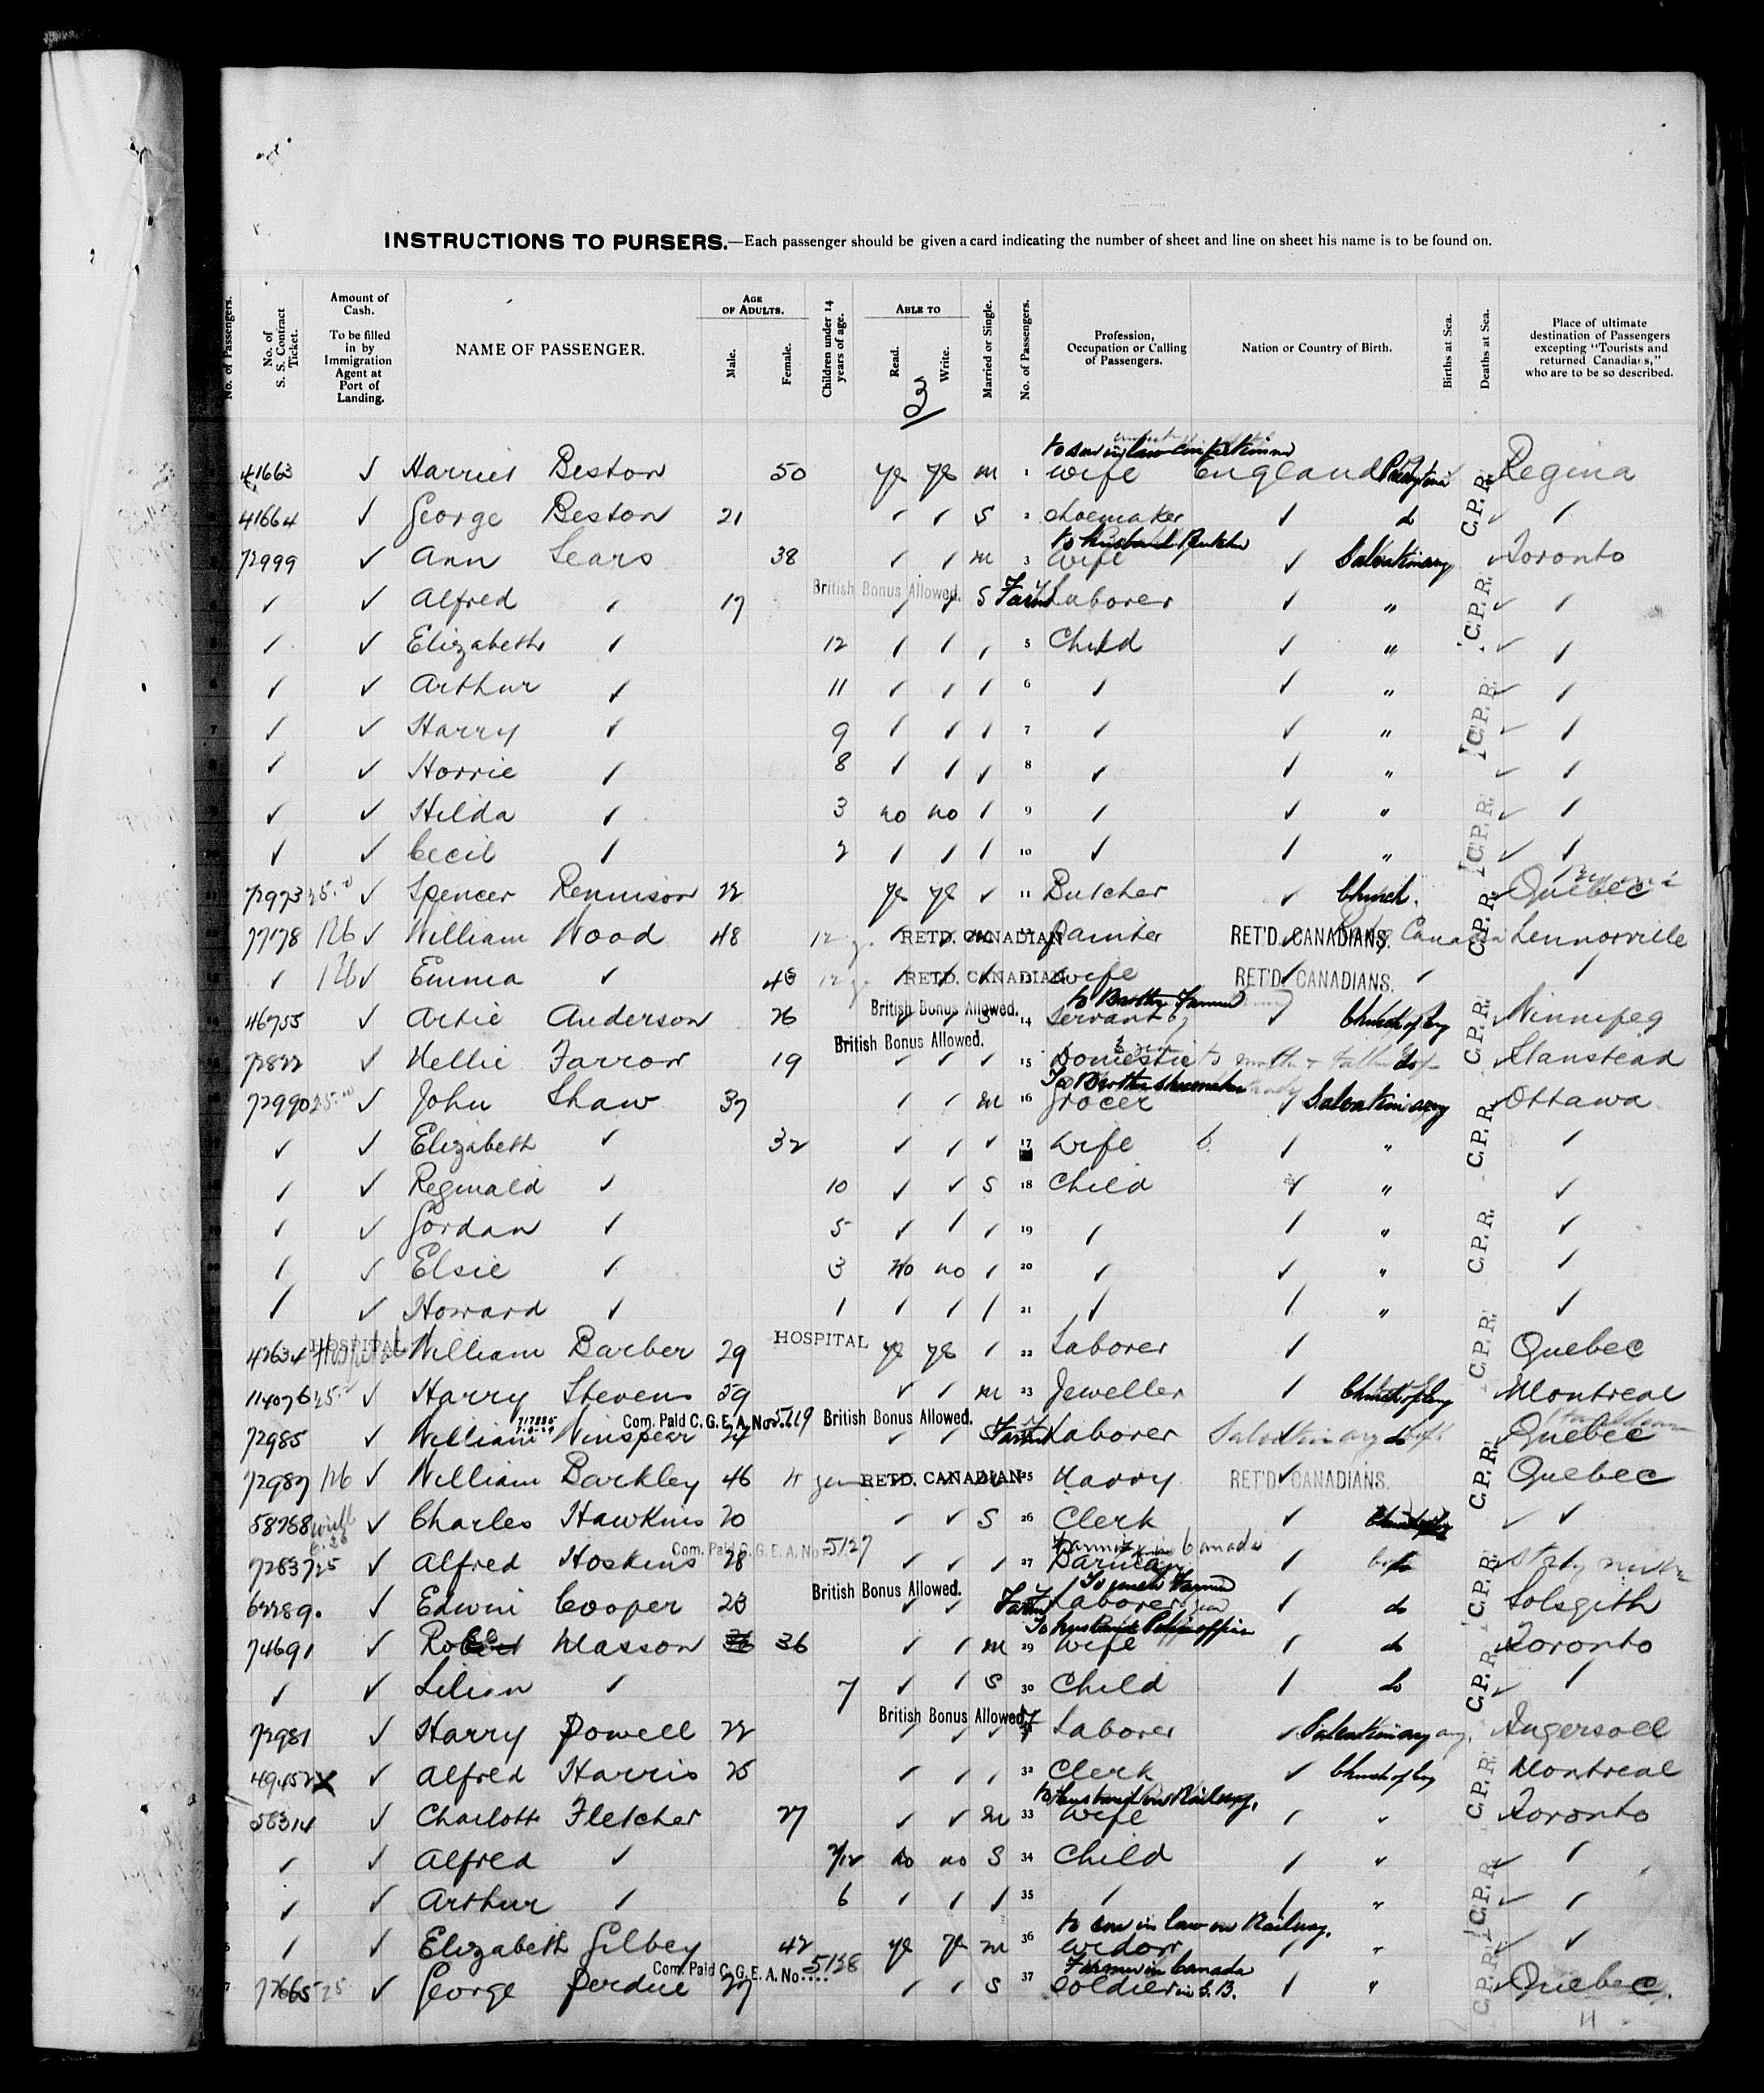 INSTRUCTIONS TO PURSERS.—Each passenger should be given a card indicating the number of sheet and line on sheet his name is to be found on.
No. of Passengers. No. of S. S. Contract Ticket. Amount of Cash. To be filled in by Immigration Agent at Port of Landing. NAME OF PASSENGER. AGE OF ADULTS. Male. Female. Children under 14 years of age. ABLE TO Read. Write. Married or Single. No. of Passengers. Profession, Occupation or Calling of Passengers. Nation or Country of Birth. Births at Sea. Deaths at Sea. Place of ultimate destination of Passengers excepting "Tourists and returned Canadians," who are to be so described.
3
to son in law
41663 ✓ Harriet Beston 50 ye ye m 1 wife England Regina
41664 ✓ George Beston 21 ✓ ✓ S 2 shoemaker ✓ do ✓ C.P.R.
to husband Butcher
72999 ✓ Ann Sears 38 ✓ ✓ m 3 wife ✓ Salvation army Toronto
British Bonus Allowed.
✓ ✓ Alfred ✓ 17 ✓ ✓ S Farm Laborer ✓ " ✓ C.P.R. ✓
✓ ✓ Elizabeth ✓ 12 ✓ ✓ ✓ 5 Child ✓ " ✓ ✓
✓ ✓ Arthur ✓ 11 ✓ ✓ ✓ 6 ✓ ✓ " ✓ ✓
✓ ✓ Harry ✓ 9 ✓ ✓ ✓ 7 ✓ ✓ " C.P.R. ✓ ✓
✓ ✓ Horrie ✓ 8 ✓ ✓ ✓ 8 ✓ ✓ " ✓ ✓
✓ ✓ Hilda ✓ 3 no no ✓ 9 ✓ ✓ " C.P.R. ✓ ✓
✓ ✓ Cecil ✓ 2 ✓ ✓ ✓ 10 ✓ ✓ " ✓ ✓
72973 25.00 ✓ Spencer Rennison 22 ye ye ✓ 11 Butcher ✓ Church. Quebec
77178 126 ✓ William Wood 48 12 RETD. CANADIAN Painter RET'D. CANADIANS. Canada C.P.R. Lennoxville
✓ 126 ✓ Emma ✓ 43 12 RETD. CANADIAN wife RET'D. CANADIANS. ✓ ✓
British Bonus Allowed. to Brother Farmer
46755 ✓ Artie Anderson 26 ✓ ✓ S 14 Servant ✓ Church of Eng Winnipeg
British Bonus Allowed.
72822 ✓ Nellie Farron 19 ✓ ✓ ✓ 15 Domestic do C.P.R. Stanstead
To Brother shoemaker
72990 25.00 ✓ John Shaw 37 ✓ ✓ m 16 Grocer ✓ Salvation army Ottawa
✓ ✓ Elizabeth ✓ 32 ✓ ✓ ✓ 17 wife ✓ " C.P.R. ✓
✓ ✓ Reginald ✓ 10 ✓ ✓ S 18 Child ✓ " ✓
✓ ✓ Gordan ✓ 5 ✓ ✓ ✓ 19 ✓ ✓ " C.P.R. ✓
✓ ✓ Elsie ✓ 3 No no ✓ 20 ✓ ✓ " ✓
✓ ✓ Howard ✓ 1 ✓ ✓ ✓ 21 ✓ ✓ " ✓
42634 HOSPITAL Hospital William Barber 29 HOSPITAL ye ye ✓ 22 Laborer ✓ C.P.R. Quebec
114076 25.00 ✓ Harry Stevens 59 ✓ ✓ m 23 Jeweller ✓ Church of Eng Montreal
Com. Paid C. G. E. A. No. 5119 British Bonus Allowed.
72985 ✓ William Winspear 24 ✓ ✓ S Farm Laborer Salvation army do Quebec
72987 126 ✓ William Barkley 46 RETD. CANADIAN 25 Navvy RET'D. CANADIANS. C.P.R. Quebec
58758 ✓ Charles Hawkins 20 ✓ ✓ S 26 Clerk ✓ ✓ ✓
Com. Paid C. G. E. A. No. 5127 Farming in Canada
72837 25 ✓ Alfred Hoskins 28 ✓ ✓ ✓ 27 Barman ✓ do
British Bonus Allowed. To uncle Farmer
62289. ✓ Edwin Cooper 23 ✓ ✓ Farm Laborer ✓ do C.P.R. Solsgith
To husband Police officer
74691 ✓ Masson 36 ✓ ✓ m 29 wife ✓ do Toronto
✓ ✓ Lilian ✓ 7 ✓ ✓ S 30 Child ✓ do C.P.R. ✓ ✓
British Bonus Allowed.
72981 ✓ Harry Powell 22 ✓ ✓ ✓ Laborer ✓ Salvation army Ingersoll
49452 X ✓ Alfred Harris 25 ✓ ✓ ✓ 32 Clerk ✓ Church of Eng C.P.R. Montreal
to husband on Railway.
56314 ✓ Charlott Fletcher 27 ✓ ✓ m 33 wife ✓ " Toronto
✓ ✓ Alfred ✓ 7/12 No no S 34 Child ✓ " ✓ ✓
✓ ✓ Arthur ✓ 6 ✓ ✓ ✓ 35 ✓ ✓ " C.P.R. ✓ ✓
to son in law on Railway.
✓ ✓ Elizabeth Gilbey 42 ye ye m 36 widow ✓ " ✓ ✓
Com. Paid C. G. E. A. No. 5138 Farmer in Canada
77665 25 ✓ George Perdue 27 ✓ ✓ S 37 Soldier in G.B. ✓ " C.P.R. Quebec.
11